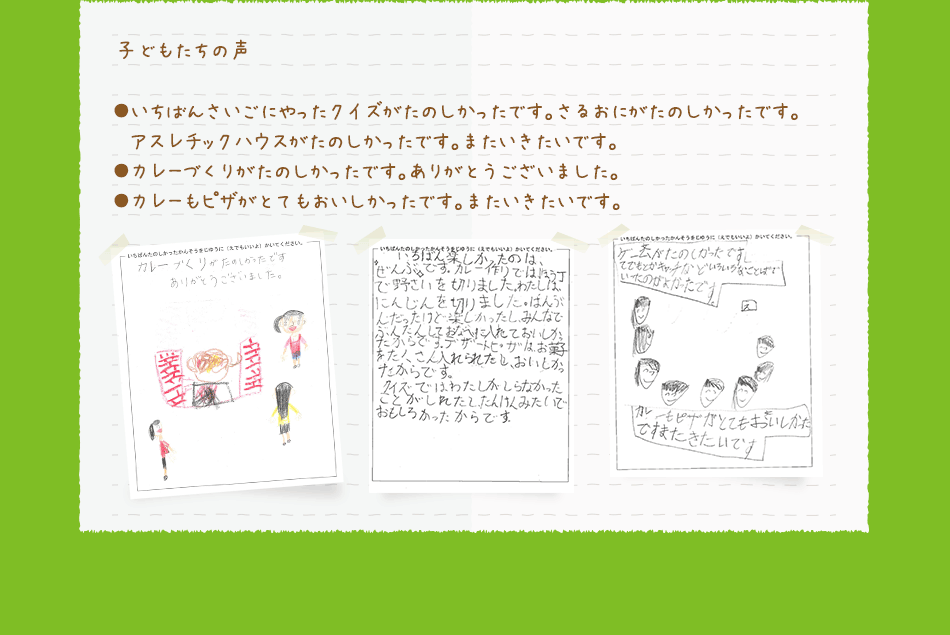 子どもたちの声
●いちばんさいごにやったクイズがたのしかったです。さるおにがたのしかったです。
アスレチックハウスがたのしかったです。またいきたいです。
●カレーづくりがたのしかったです。ありがとうございました。
●カレーもピザがとてもおいしかったです。またいきたいです。
いちばんたのしかったかんそうをじゆうに（えでもいいよ）かいてください。
カレーづくりがたのしかったです
ありがとうございました。
いちばんたのしかったかんそうをじゆうに（えでもいいよ）かいてください。
いちばん楽しかったのは、
ぜんぶです。カレー作りでは、ほう丁
で野さいを切りました。わたしは、
にんじんを切りました。
んだったけど楽しかったし、みんなで
ぶんたんして
たからです。デザートピザはお菓子
をたくさん入れられたし、おいしかっ
たからです。
クイズでは、わたしがしらなかった
ことがしれたしたんけんみたいで
おもしろかったからです。
いちばんたのしかったかんそうをじゆうに（えでもいいよ）かいてください。
がたのしかったです。
いろいろなことばで
カレーもピザがとてもおいしかた
ですまたきたいです